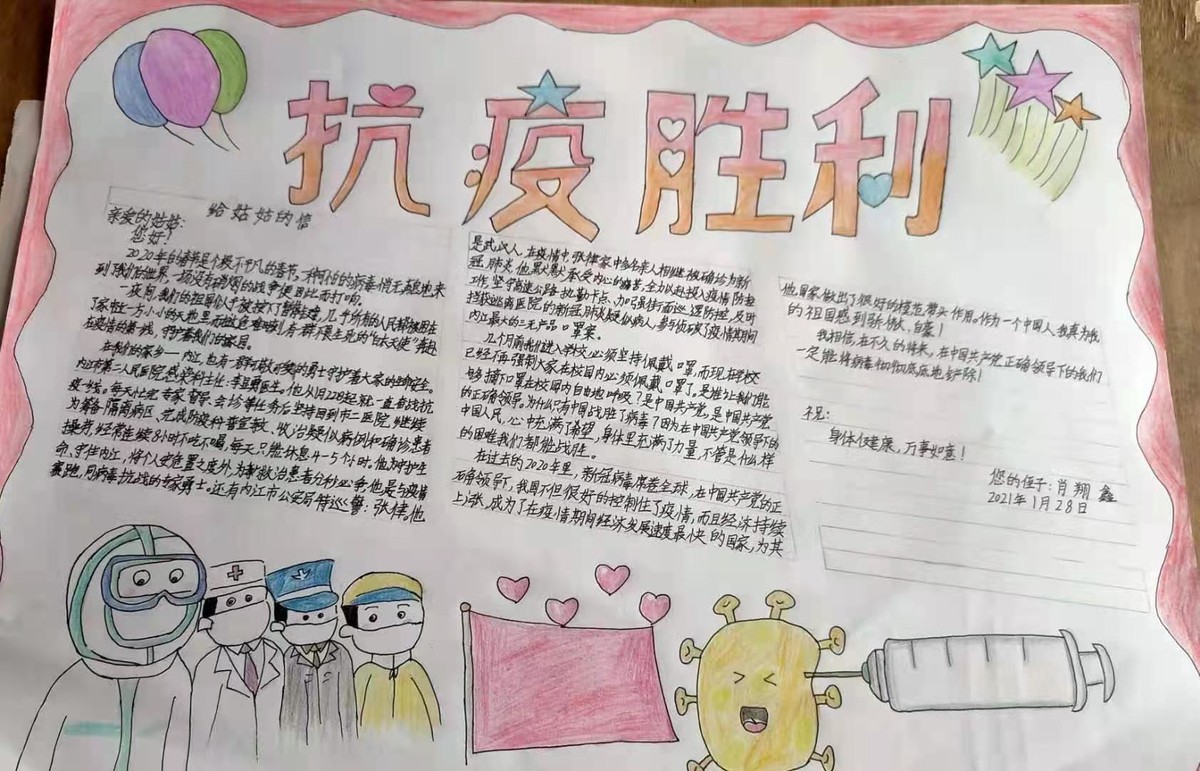 抗疫胜利
给姑姑的信
亲爱的姑姑:
您好!
2020年的春节是个极不平凡的春节,一种可怕的病毒悄无声息地来
到了我们的世界,一场没有硝烟的战争便因此而打响。
一夜间,我们的祖国似乎被按下了暂停键,几乎所有的人民都被困在
了家中这一方小小的天地里,而就在危难时刻,有一群不畏生死的"白衣天使"奔赴
在疫情的第一线,守护着我们的家园。
在我们的家乡——内江,也有一群可敬可爱的勇士守护着大家的生命安全。
内江市第二人民医院感染科主任:李卫勇医生。他从1月22日起就一直奋战抗
疫一线。每天从专家督导、会诊等任务后坚持回到市二医院,继续
为筹备隔离病区、完成防疫科普宣教、收治疑似病例和确诊患者
操劳,经常连续8小时不吃不喝,每天只能休息4-5个小时。他为呵护生
命、守住内江,将个人安危置之度外,为解救治患者分秒必争,他是与疫情
赛跑,同病毒抗战的专家勇士。还有内江市公安局特巡警:张佳,他
是武汉人,在疫情中,张佳家中多名亲人相继被确诊为新
冠肺炎,他默默承受内心的痛苦,全力以赴投入疫情防控
工作,坚守高速公路执勤卡点、加强街面巡逻防控,及时
挡获逃离医院的新冠肺炎疑似病人,参与侦破了疫情期间
内江最大的三无产品口罩案。
几个月前我们进入学校必须坚持佩戴口罩,而现在学校
已经不再强制大家在校园内必须佩戴口罩了。是谁让我们能
够摘下口罩在校园内自由地呼吸?是中国共产党,是中国共产党
的正确领导。为什么只有中国战胜了病毒?因为在中国共产党领导下的
中国人民,心中充满了希望,身体里充满了力量,不管是什么样
的困难我们都能战胜。
在过去的2020年里,新冠病毒席卷全球,在中国共产党的正
确领导下,我国不但很好的控制住了疫情,而且经济持续
上涨,成为了在疫情期间经济发展速度最快的国家,为其
他国家做出了很好的模范带头作用。作为一个中国人,我真为我
的祖国感到骄傲、自豪!
我相信,在不久的将来,在中国共产党正确领导下的我们
一定能将病毒彻彻底底地铲除!
祝:
身体健康,万事如意!
您的侄子:肖翔鑫
2021年1月28日